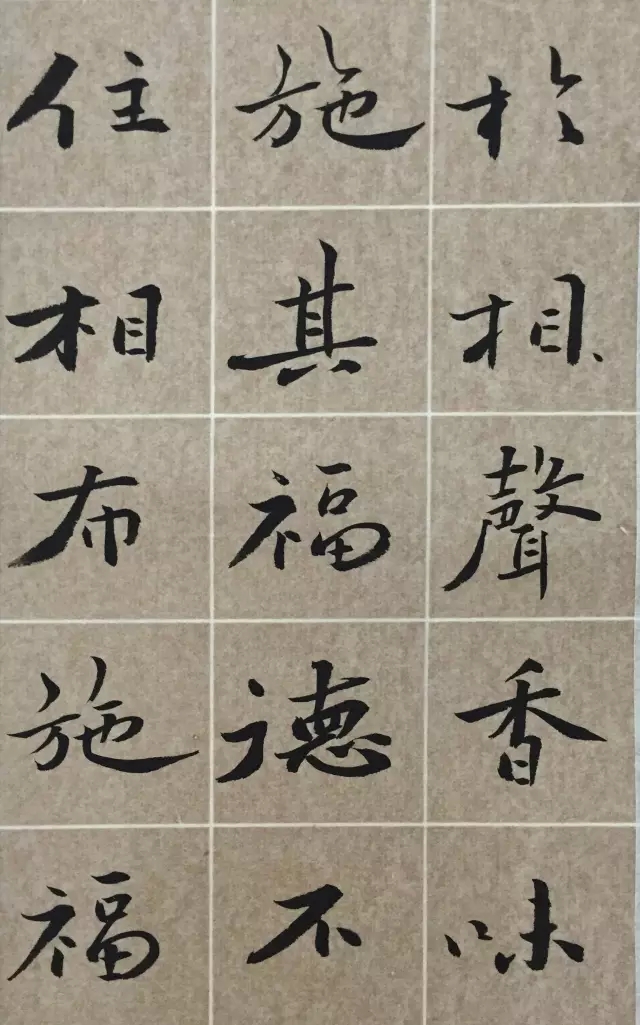 於相聲香味
施其福德不
住相布施福